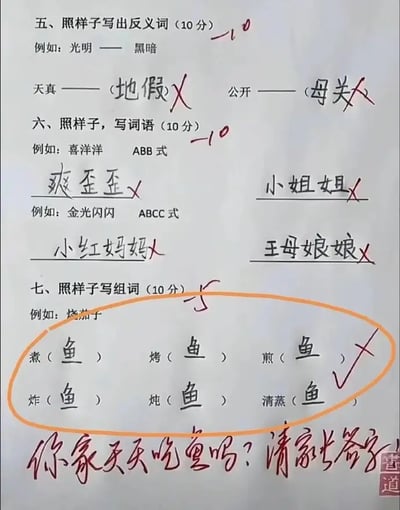 五、照样子写出反义词(10分) -10
例如:光明 —— 黑暗
天真 ——(地假) 公开 ——(母关)
六、照样子,写词语(10分) -10
例如:喜洋洋 ABB 式
爽歪歪 小姐姐
例如:金光闪闪 ABCC 式
小红妈妈 王母娘娘
七、照样子写组词(10分) -5
例如:烧茄子
煮(鱼) 烤(鱼) 煎(鱼)
炸(鱼) 炖(鱼) 清蒸(鱼)
你家天天吃鱼吗?请家长签字!
書道